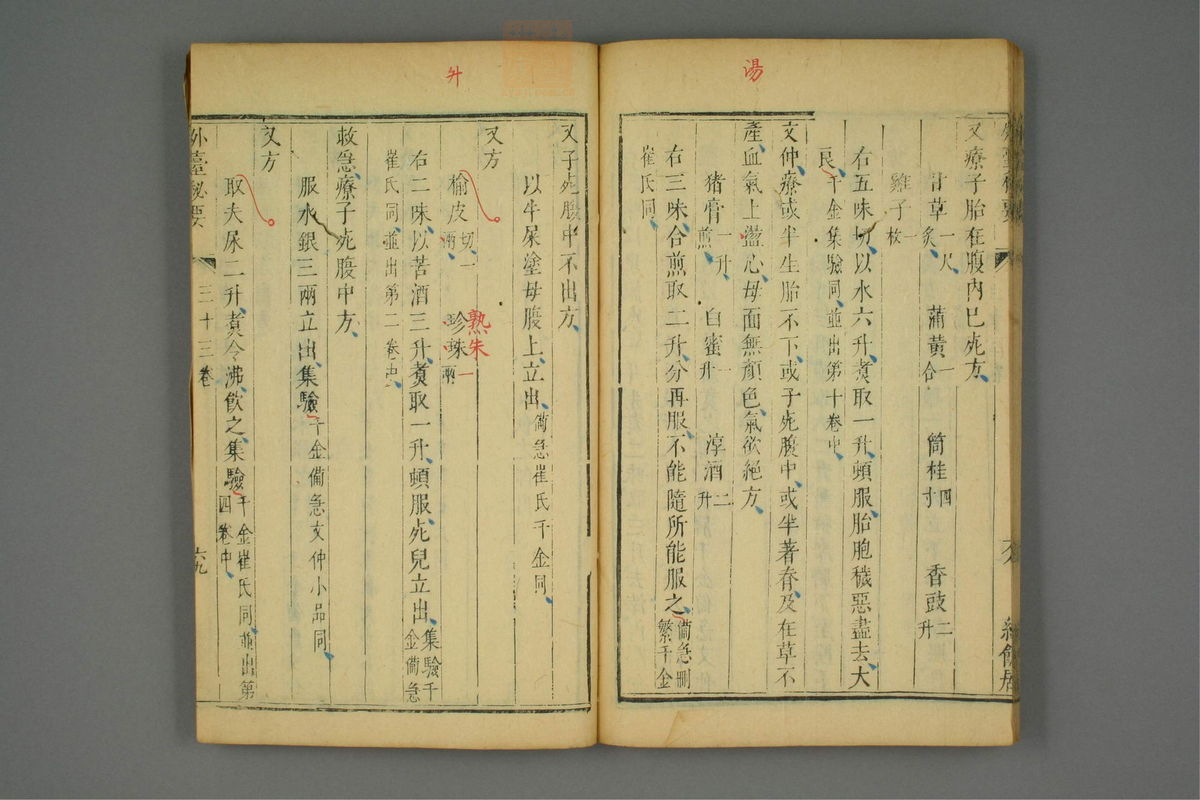 湯
又療子胎在腹内已死方
甘草一尺炙 蒲黄一合 筒桂四寸 香豉二升
雞子一枚
右五味切以水六升煮取一升頓服胎胞穢惡盡去大
良千金集驗同並出第十卷中
文仲療或半生胎不下或子死腹中或半著脊及在草不
產血氣上盪心母面無顔色氣欲絶方
猪膏一升煎 白蜜一升 淳酒二升
右三味合煎取二升分再服不能隨所能服之備急刪繁千金
崔氏同
外
又子死腹中不出方
以牛屎塗母腹上立出備急崔氏千金同
又方
榆皮切一兩 珍珠一兩
熟朱
右二味以苦酒三升煮取一升頓服死兒立出集驗千金備急
崔氏同並出第二卷中
救急療子死腹中方
服水銀三兩立出集驗千金備急文仲小品同
又方
取夫尿二升煮令沸飲之集驗千金崔氏同並出第四卷中
外臺秘要 三十三卷 六九